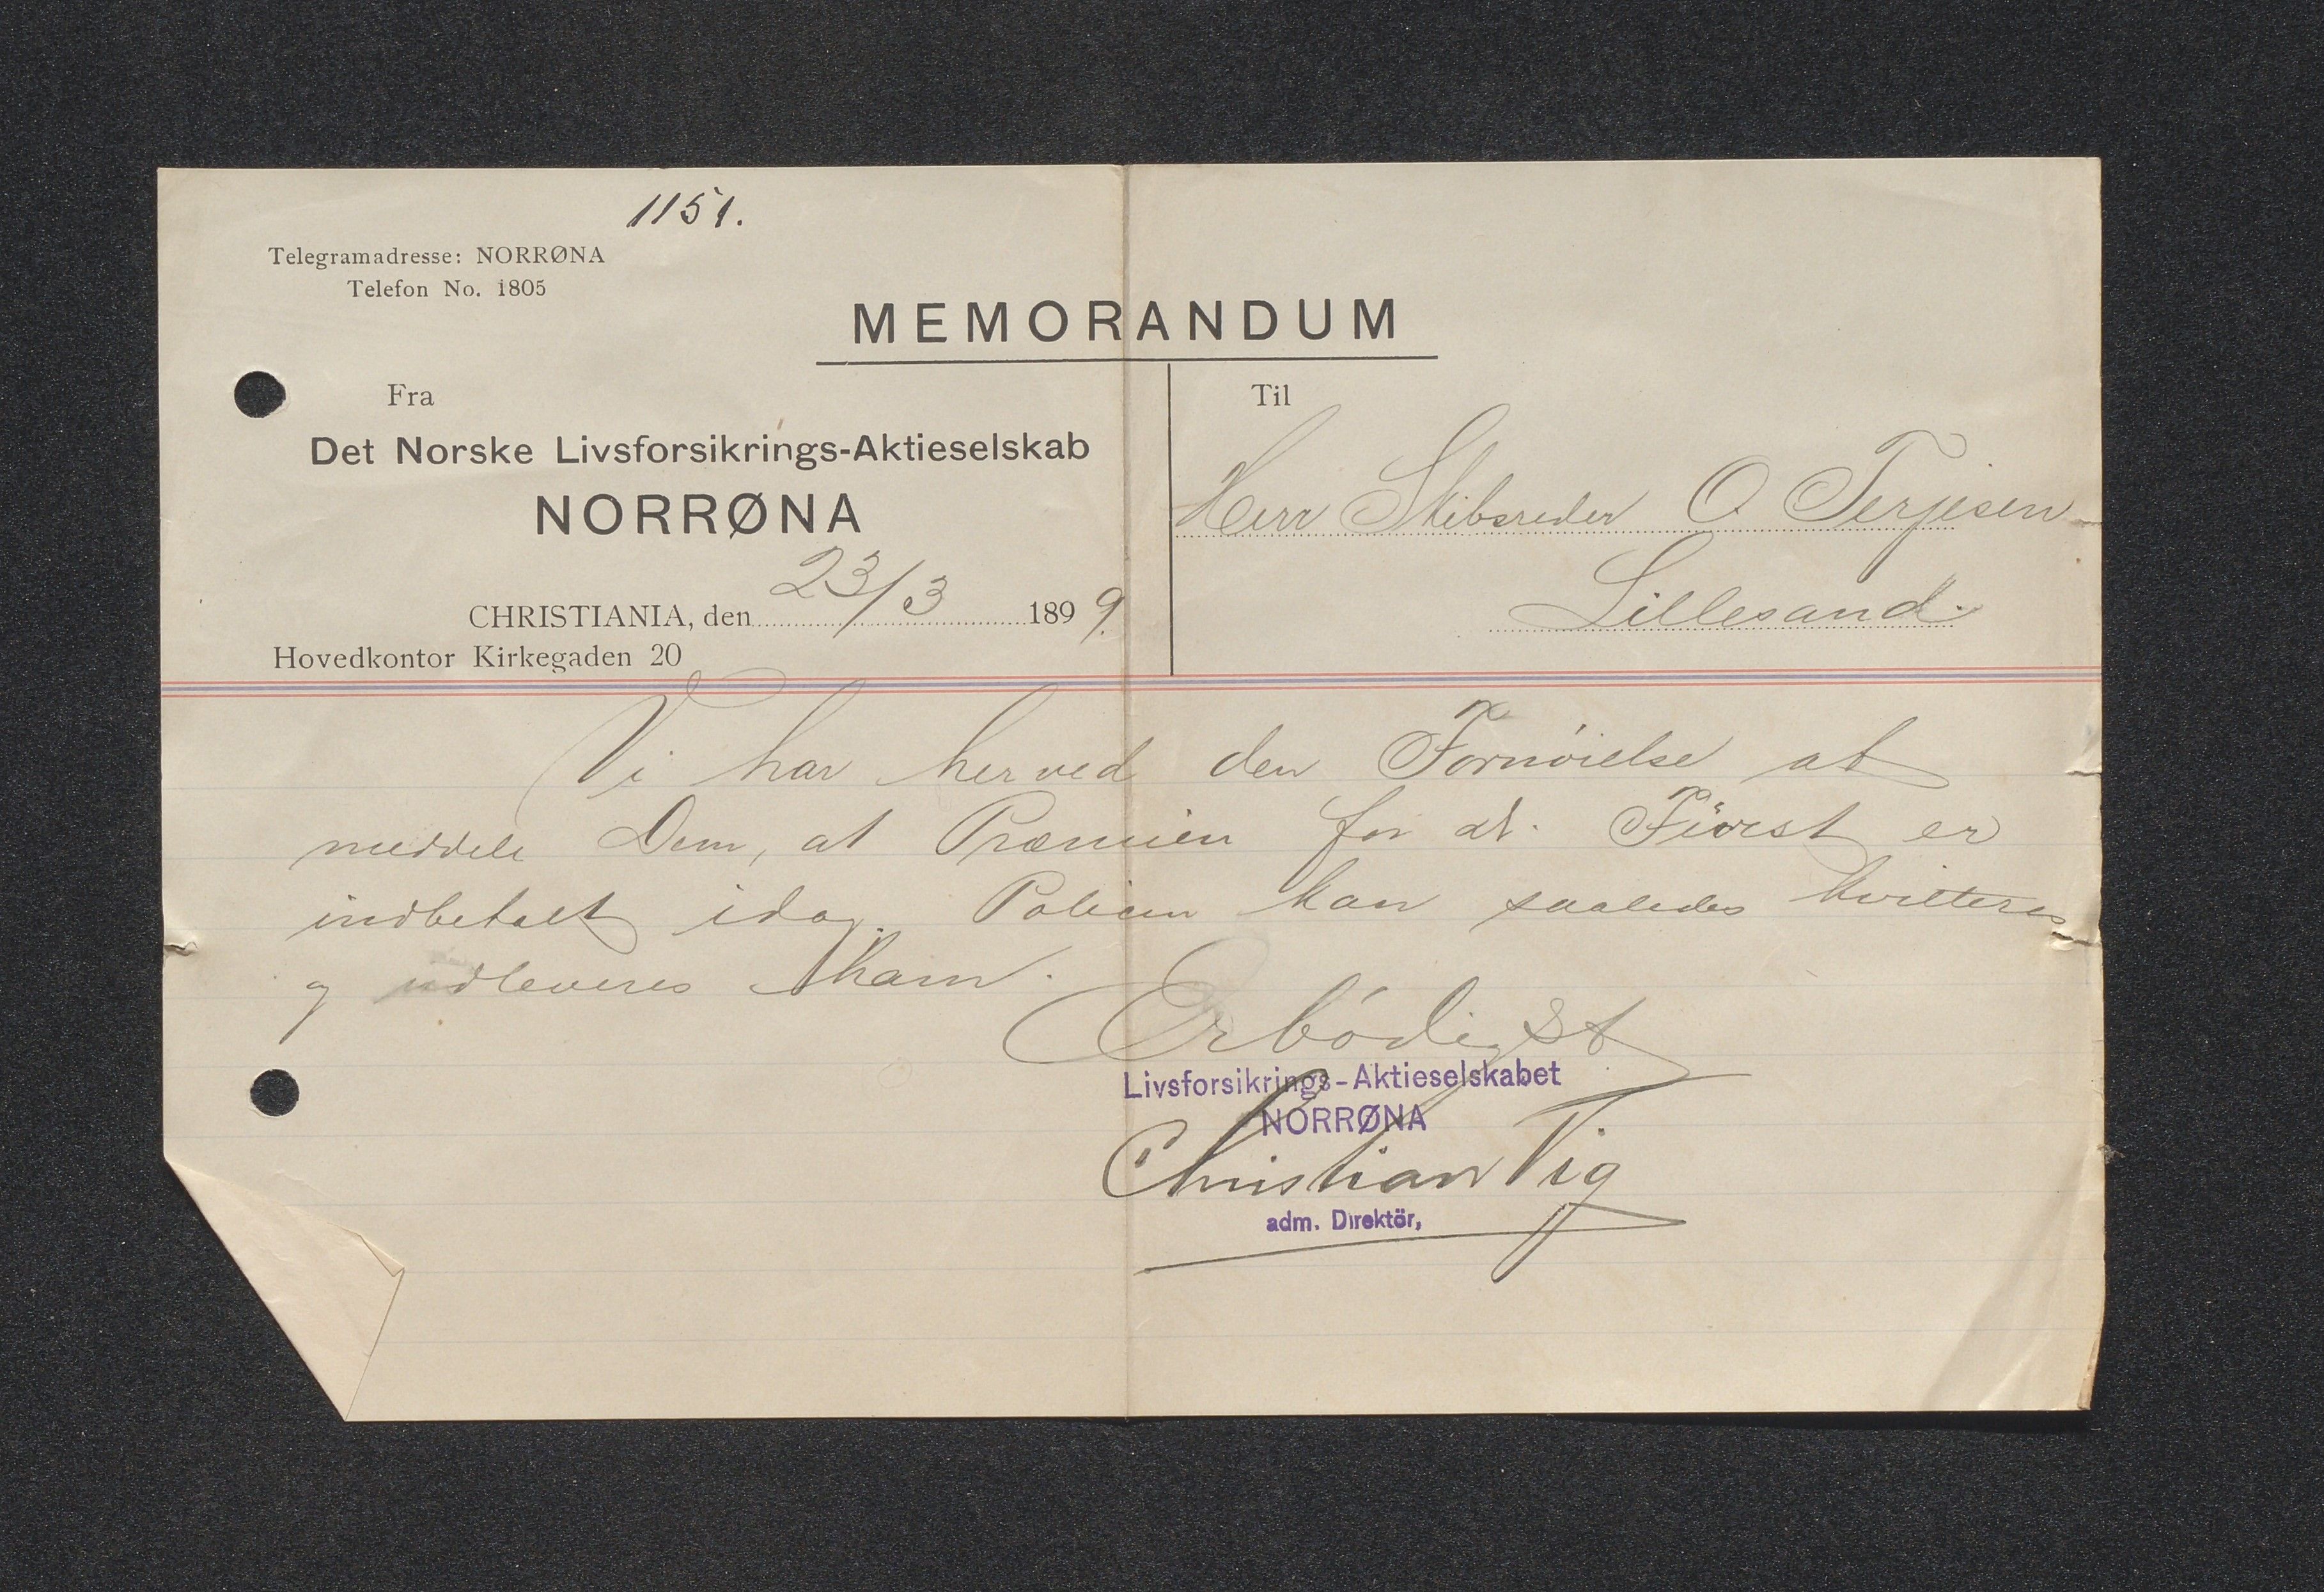 1151.
Telegramadresse: NORRØNA
Telefon No. 1805
MEMORANDUM
Fra
Det Norske Livsforsikrings-Aktieselskab
NORRØNA
CHRISTIANIA, den 23/3 1899.
Hovedkontor Kirkegaden 20
Til
Herr Skibsreder O Terjesen
Lillesand.
Vi har herved den Fornöielse at
meddele Dem, at Præmien for dr. Fürst er
indbetalt idag. Policen kan saaledes kvitteres
og udleveres ham.
Erbödigst
Livsforsikrings-Aktieselskabet
NORRØNA
Christian Vig
adm. Direktör,